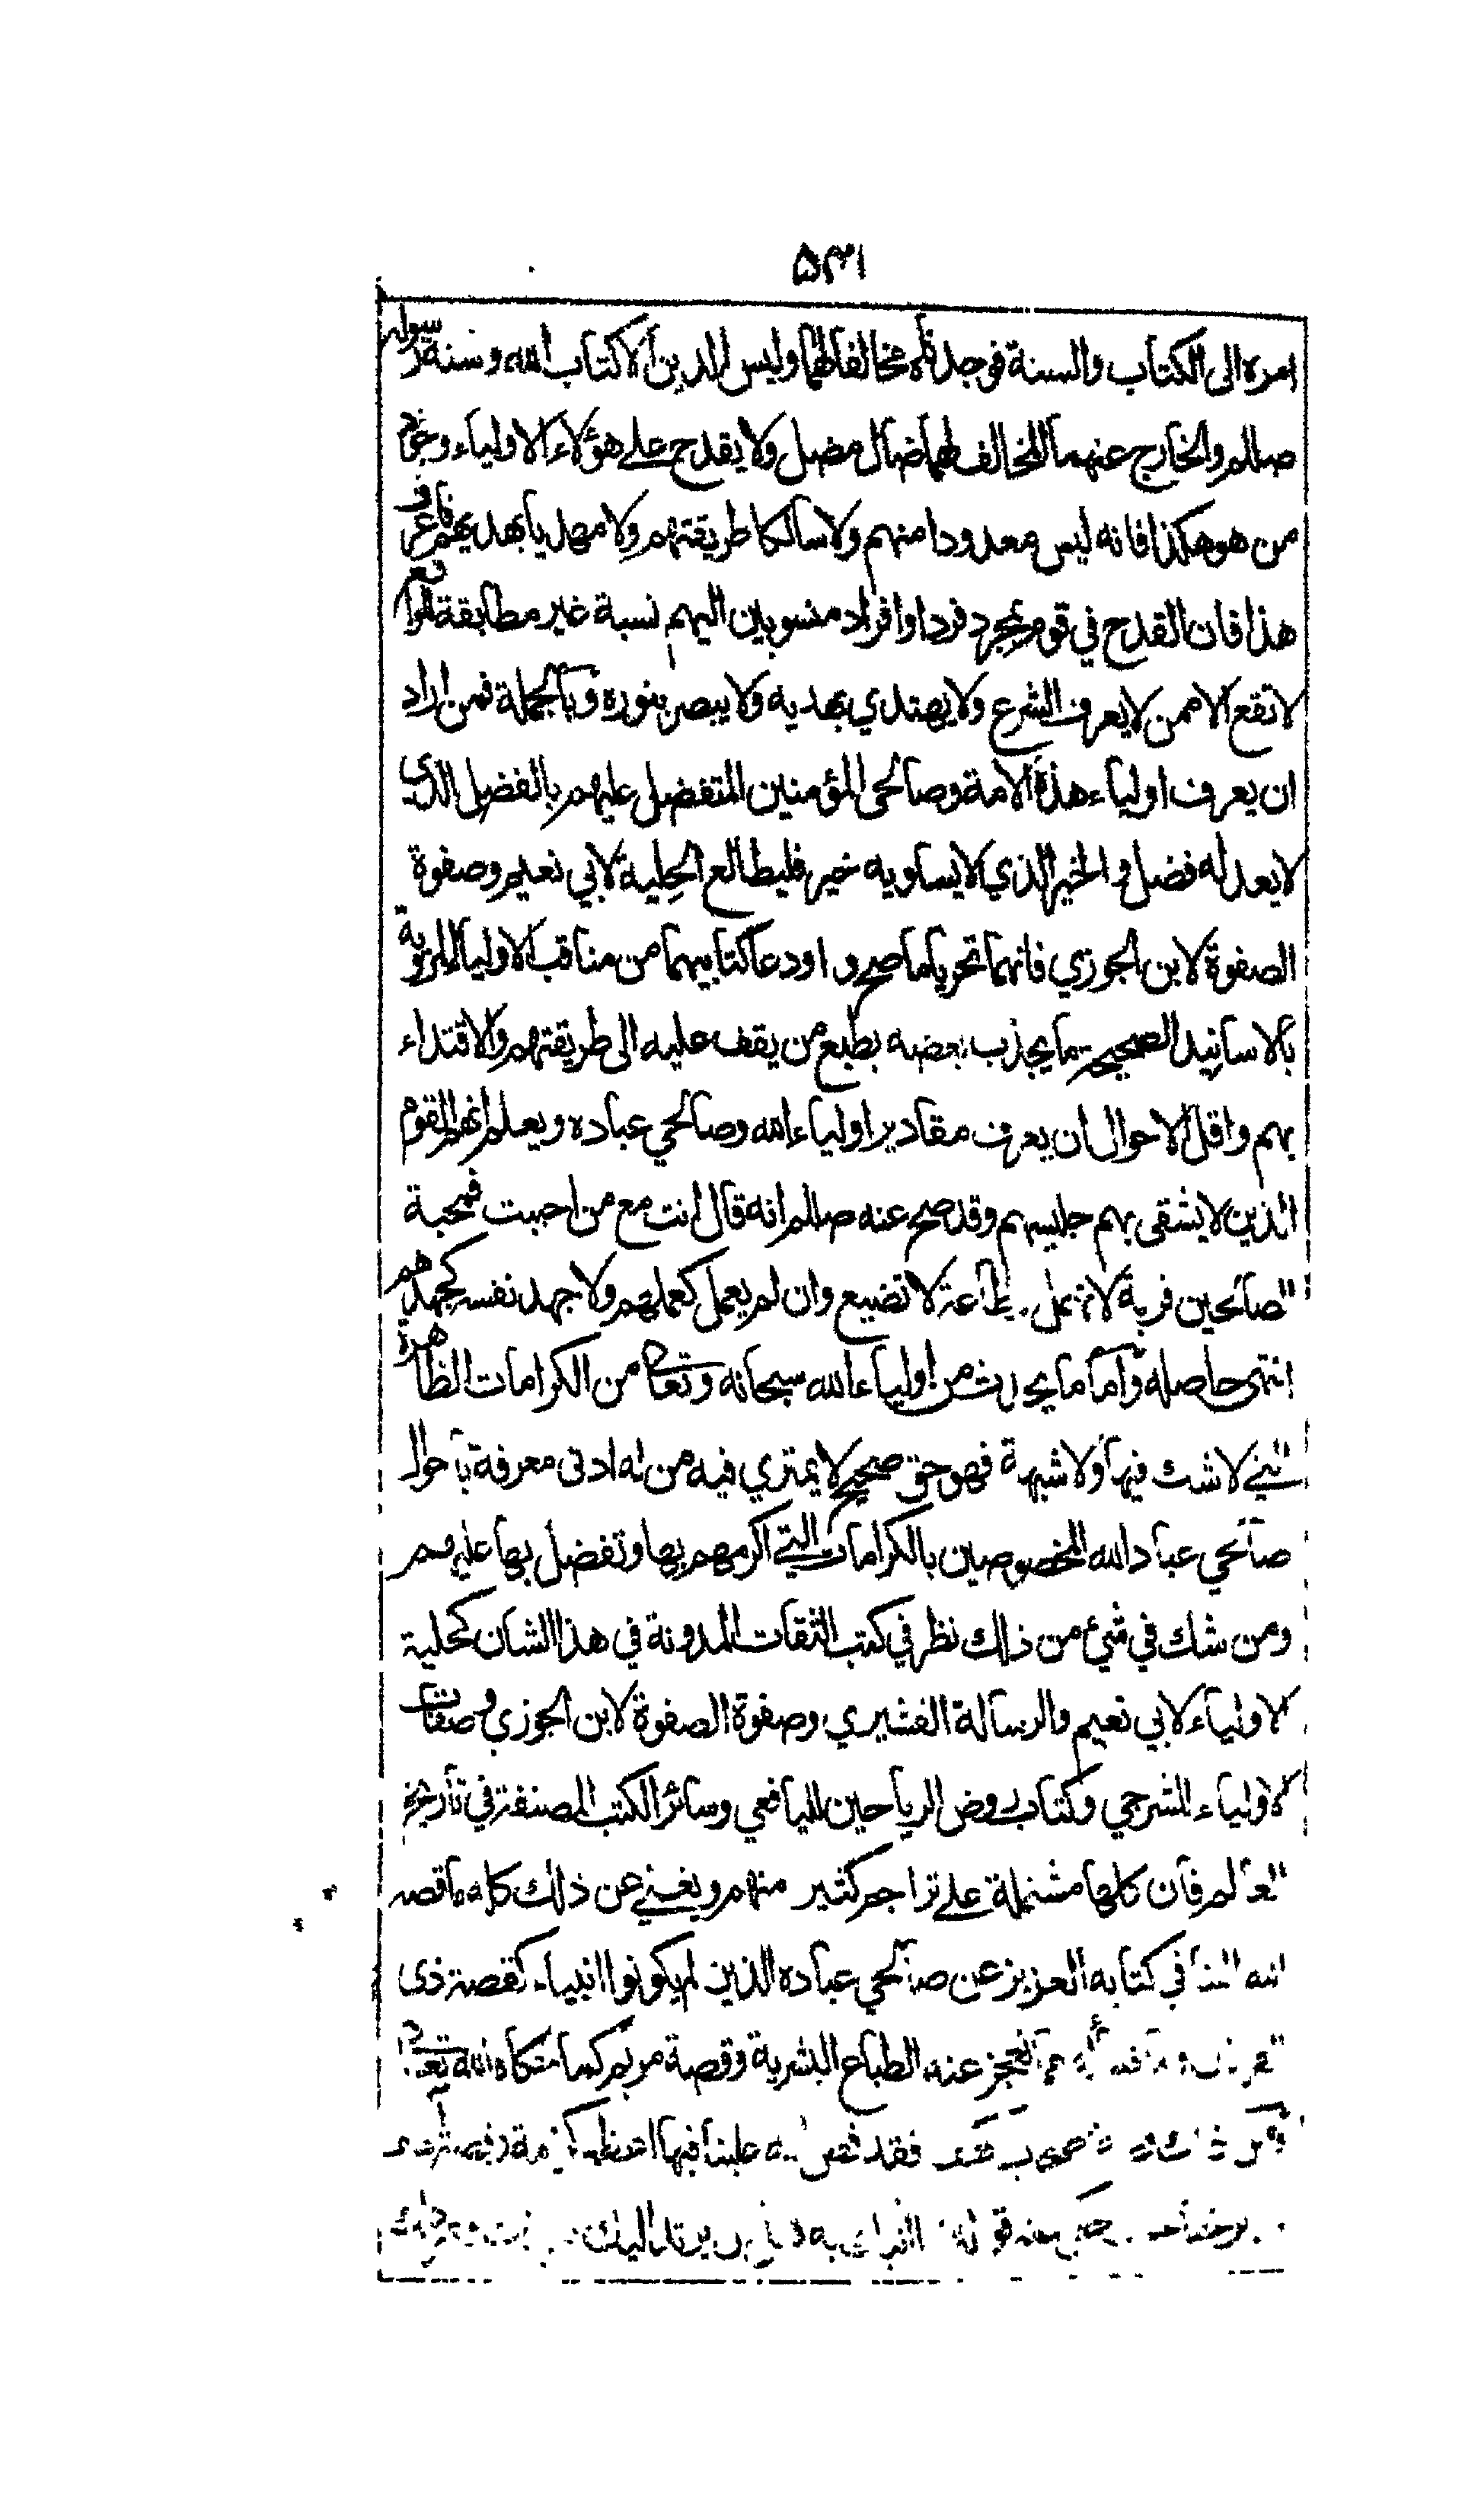 ۵۳۱
امره الى الكتاب والسنة فوجد مخالفا لهما وليس الدين الا كتاب الله وسنة رسوله
صللم والخارج عنهما المخالف لهما ضال مضل ولا يقدح على هؤلاء الاولياء وجود
من هو هكذا فانه ليس معدودا منهم ولا سالكا طريقتهم ولا مهديا بهديهم فاعرف
هذا فان القدح في قوم بمجرد فرد او افراد منسوبين اليهم نسبة غير مطابقة للواقع
لا تقع الا ممن لا يعرف الشرع ولا يهتدي بهديه ولا يبصر بنوره وبالجملة فمن اراد
ان يعرف اولياء هذه الامة وصالحى المؤمنين المتفضل عليهم بالفضل الذي
لا يعدله فضل والخير الذي لا يساويه خير فليطالع الحلية لابي نعيم وصفوة
الصفوة لابن الجوزي فانهما تحريا ما صح واودعا كتابيهما من مناقب الاولياء المروية
بالاسانيد الصحيحة ما يجذب بعضه بطبع من يقف عليه الى طريقتهم والاقتداء
بهم واقل الاحوال ان يعرف مقادير اولياء الله وصالحي عباده ويعلم انهم القوم
الذين لا يشقى بهم جليسهم وقد صح عنه صللم انه قال انت مع من احببت فمحبة
الصالحين قربة لا تهمل وطاعة لا تضيع وان لم يعمل كعملهم ولا جهد نفسه كجهدهم
انتهى حاصله واما ما يحدث من اولياء الله سبحانه وتعالى من الكرامات الظاهرة
التي لا شك فيها ولا شبهة فهو حق صحيح لا يمتري فيه من له ادنى معرفة باحوال
صالحي عباد الله المخصوصين بالكرامات التي اكرمهم بها وتفضل بها عليهم
ومن شك في شيء من ذلك نظر في كتب الثقات المدونة في هذا الشان كحلية
الاولياء لابي نعيم والرسالة القشيري وصفوة الصفوة لابن الجوزي وصفات
الاولياء للشرجي وكتاب روض الرياحين لليافعي وسائر الكتب المصنفة في تاريخ
العالم فان كلها مشتملة على تراجم كثير منهم ويغني عن ذلك كله ما قصه
الله الينا في كتابه العزيز عن صالحي عباده الذين لم يكونوا انبياء كقصة ذى
القرنين وما تعجز عنه الطباع البشرية وقصة مريم كما حكاه الله تعالى
فقد قص الله علينا فيها اعظم كرامة
حكى عنه قوله انا اتيك به قبل ان يرتد اليك